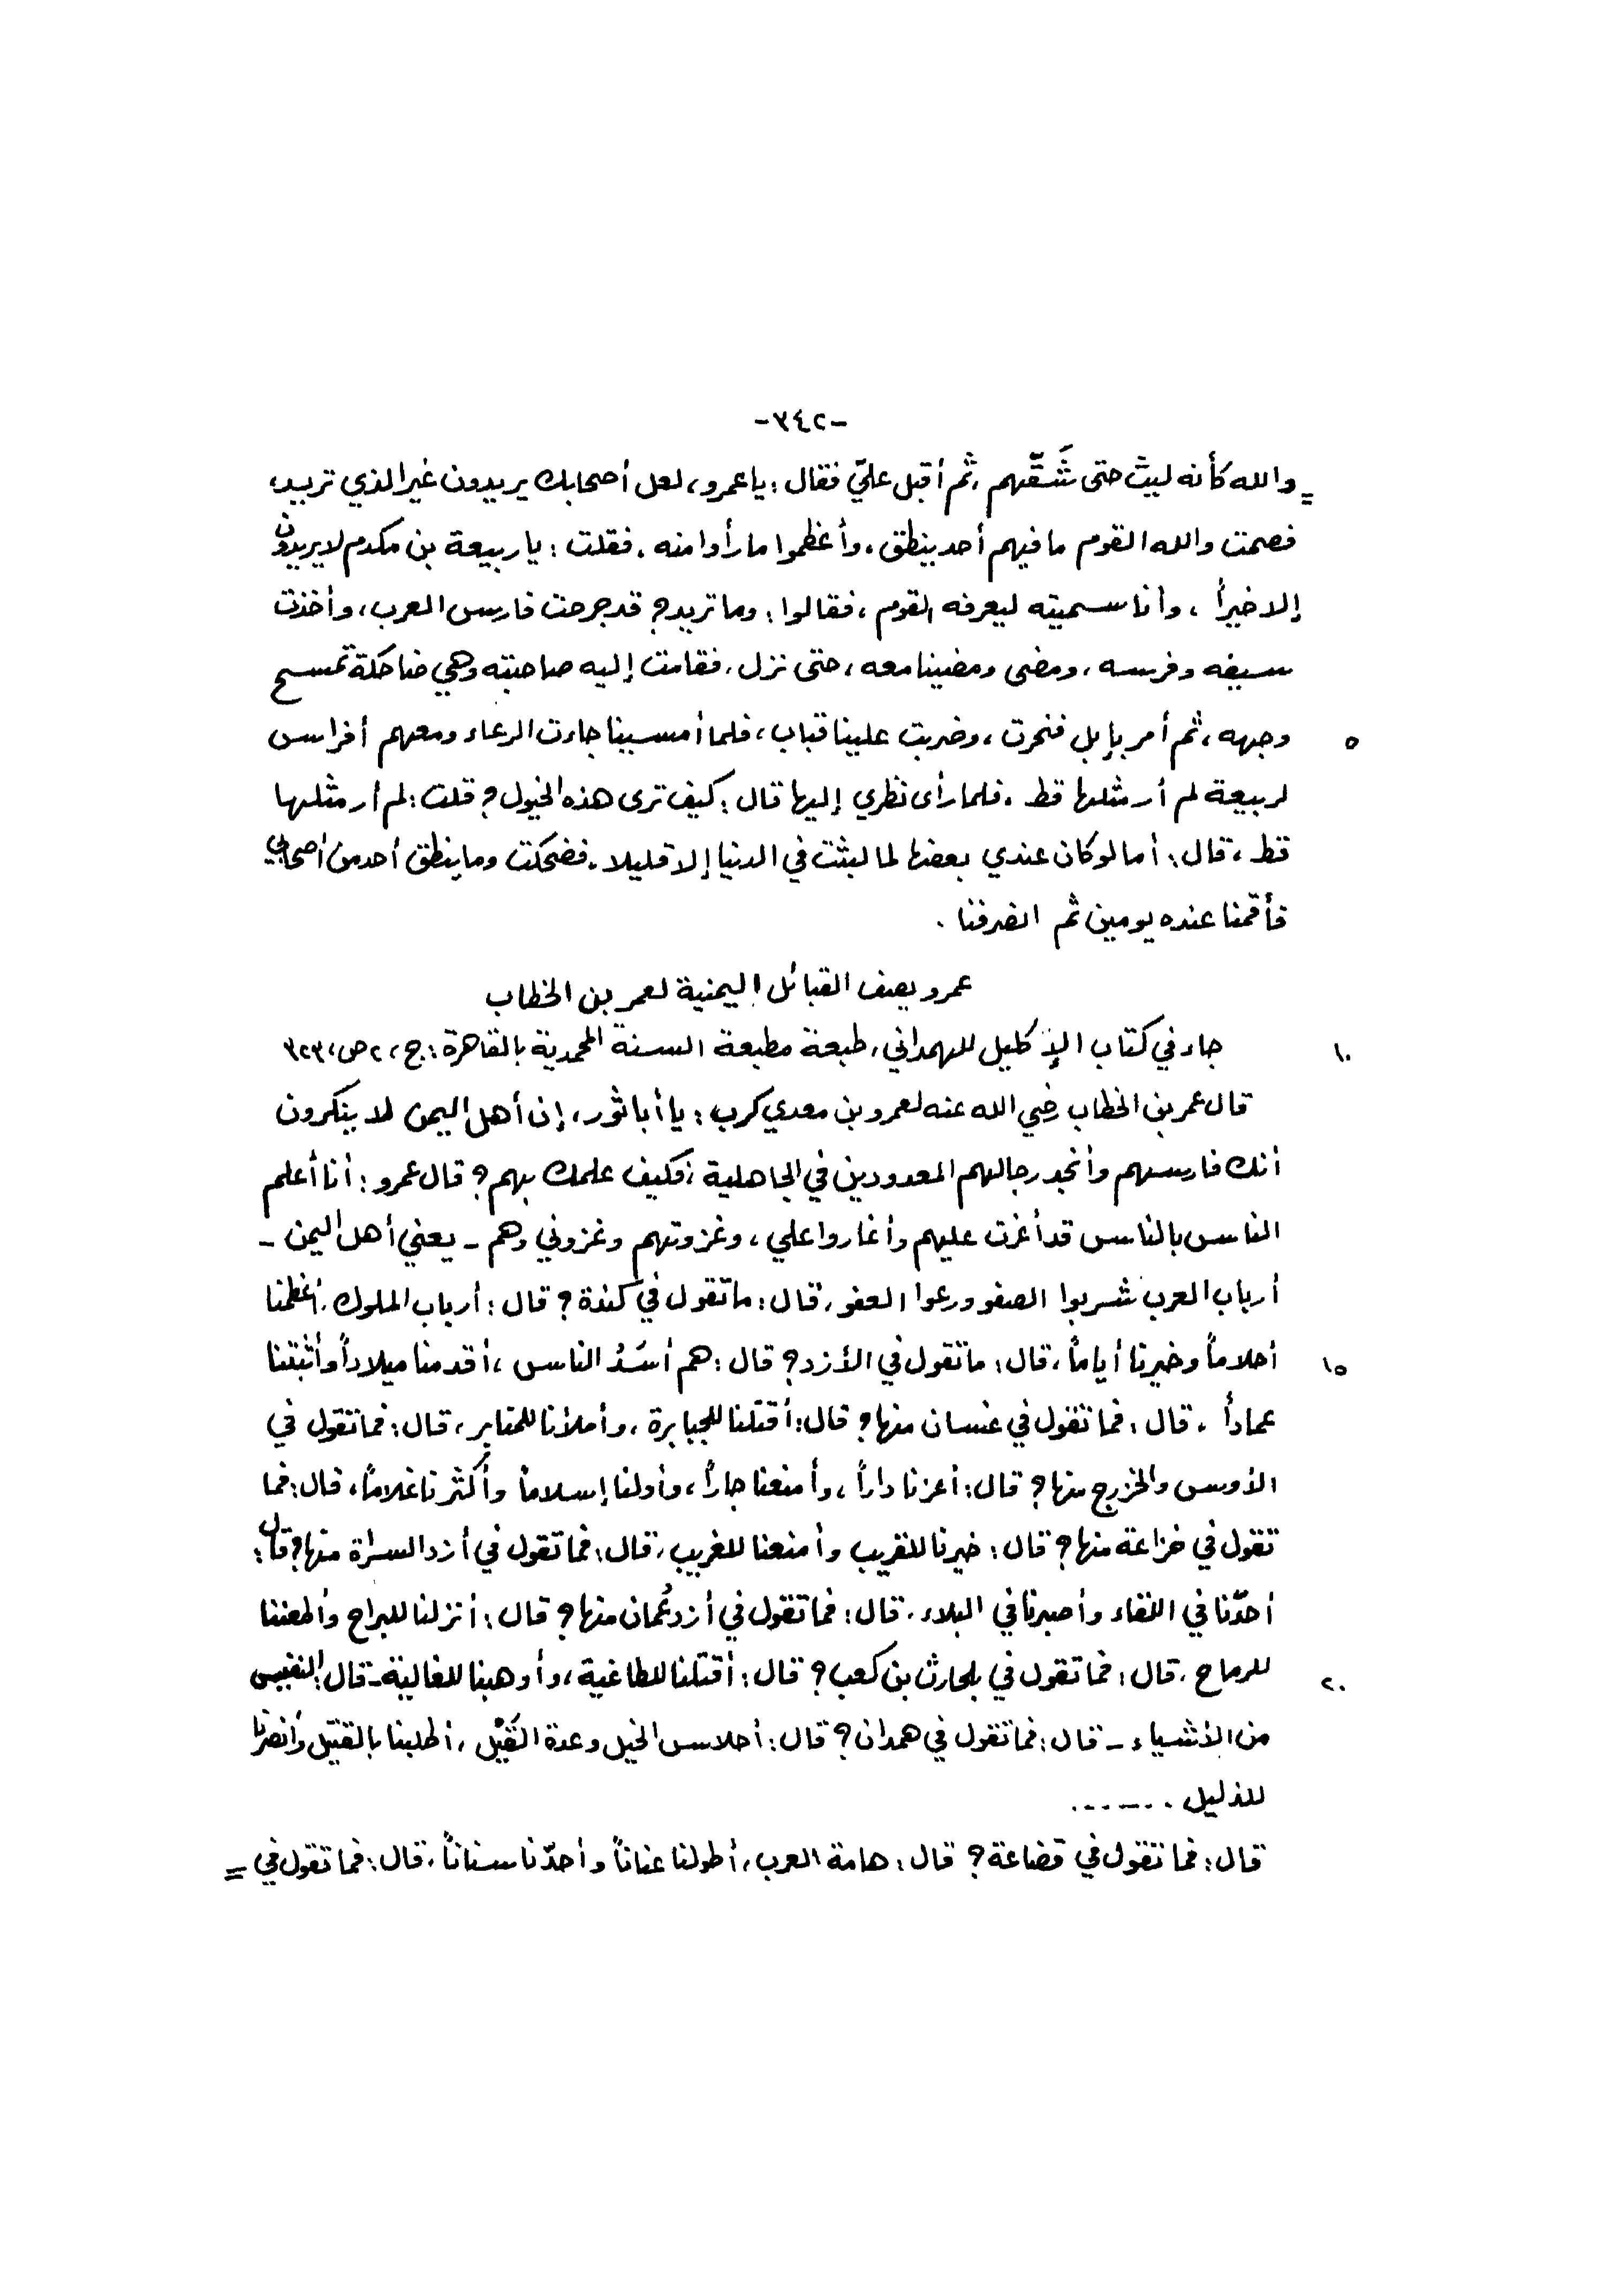 -٣٤٢-
= والله كأنه ليث حتى شَقَّهم، ثم أقبل عليّ فقال: يا عمرو، لعل أصحابك يريدون غير الذي تريد،
فصمت والله القوم ما فيهم أحد ينطق. وأعظموا ما رأوا منه. فقلت: يا ربيعة بن مكدم لا يريدون
إلا خيراً، وأنا سميته ليعرفه القوم، فقالوا: وما تريد؟ قد جرحت فارس العرب، وأخذت
سيفه وفرسه، ومضى ومضينا معه، حتى نزل. فقامت إليه صاحبته وهي ضاحكة تمسح
٥ وجهه، ثم أمر بإبل فنحرت، وضربت علينا قباب، فلما أمسينا جاءت الرعاء ومعهم أفراس
لربيعة لم أر مثلها قط. فلما رأى نظري إليها قال: كيف ترى هذه الخيول؟ قلت: لم أر مثلها
قط، قال: أما لو كان عندي بعضها لما لبثت في الدنيا إلا قليلا. فضحكت وما ينطق أحد من أصحابي
فأقمنا عنده يومين ثم انصرفنا.
عمرو يصف القبائل اليمنية لعمر بن الخطاب
١٠ جاء في كتاب الإكليل للهمداني، طبعة مطبعة السنة المحمدية بالقاهرة: ج، ٢ ص، ٣٢٣
قال عمر بن الخطاب رضي الله عنه لعمرو بن معدي كرب: يا أبا ثور، إن أهل اليمن لا ينكرون
أنك فارسهم وأنجد رجالهم المعدودين في الجاهلية، فكيف علمك بهم؟ قال عمرو: أنا أعلم
الناس بالناس قد أغرت عليهم وأغاروا علي، وغزوتهم وغزوني وهم - يعني أهل اليمن -
أرباب العرب شربوا الصفو ورعوا العفو، قال: ما تقول في كندة؟ قال: أرباب الملوك، أعظمنا
١٥ أحلاماً وخيرنا أياماً، قال: ما تقول في الأزد؟ قال: هم أسَدُ الناس، أقدمنا ميلاداً وأثبتنا
عماداً. قال: فما تقول في غسان منها؟ قال: أقتلنا للجبابرة، وأملأنا للمقابر، قال: فما تقول في
الأوس والخزرج منها؟ قال: أعزنا داراً، وأمنعنا جاراً، وأولنا إسلاماً وأكثرنا غلاماً، قال: فما
تقول في خزاعة منها؟ قال: خيرنا للقريب وأمنعنا للغريب، قال: فما تقول في أزد السراة منها؟ قال:
أحدّنا في اللقاء وأصبرنا في البلاء. قال: فما تقول في أزد عُمان منها؟ قال: أنزلنا للبراح وأطعننا
٢٠ للرماح. قال: فما تقول في بلحارث بن كعب؟ قال: أقتلنا للطاغية، وأوهبنا للغالية - قال: النفيس
من الأشياء - قال: فما تقول في همدان؟ قال: أحلاس الخيل وعدة القَيْل، أطلبنا بالقتيل وأنصرنا
للذليل ......
قال: فما تقول في قضاعة؟ قال: هامة العرب، أطولنا عناناً وأحدّنا سناناً، قال: فما تقول في =